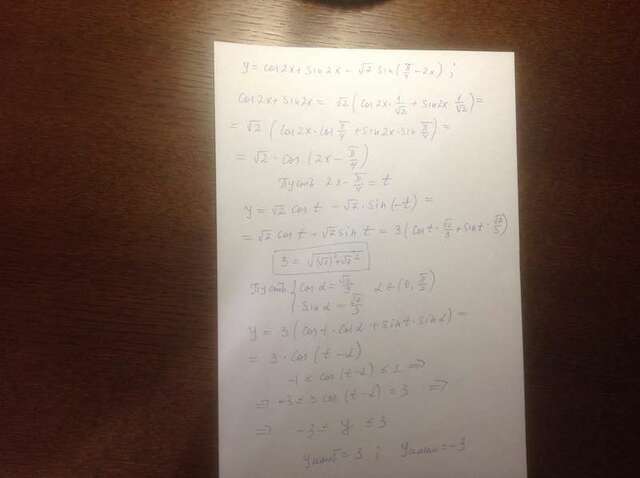 y = cos2x + sin2x − √7 sin(π/4 − 2x) ;
cos2x + sin2x = √2 (cos2x · 1/√2 + sin2x · 1/√2) =
= √2 (cos2x · cos π/4 + sin2x · sin π/4) =
= √2 · cos (2x − π/4)
Пусть 2x − π/4 = t
y = √2 cos t − √7 · sin(−t) =
= √2 cos t + √7 sin t = 3 (cos t · √2/3 + sin t · √7/3)
3 = √((√2)² + √7²)
Пусть { cos α = √2/3
sin α = √7/3 α ∈ (0, π/2)
y = 3 (cos t · cos α + sin t · sin α) =
= 3 · cos (t − α)
−1 ≤ cos (t − α) ≤ 1 ⇒
⇒ −3 ≤ 3 cos (t − α) ≤ 3 ⇒
⇒ −3 ≤ y ≤ 3
yнаиб = 3 ; yнаим = −3